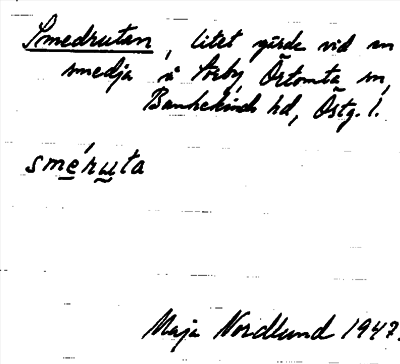 Smedrutan, litet gärde vid en
smedja å Torby, Örtomta sn,
Bankekinds hd, Östg. l.
sméruta
Maja Nordlund 1947.